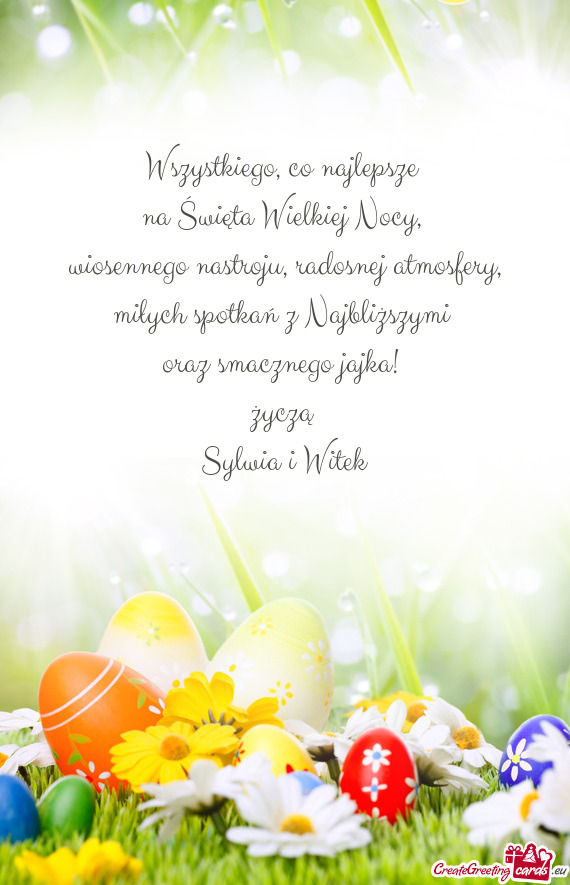 Wszystkiego, co najlepsze
na Święta Wielkiej Nocy,
wiosennego nastroju, radosnej atmosfery,
miłych spotkań z Najbliższymi
oraz smacznego jajka!
życzą
Sylwia i Witek
CreateGreeting cards.eu